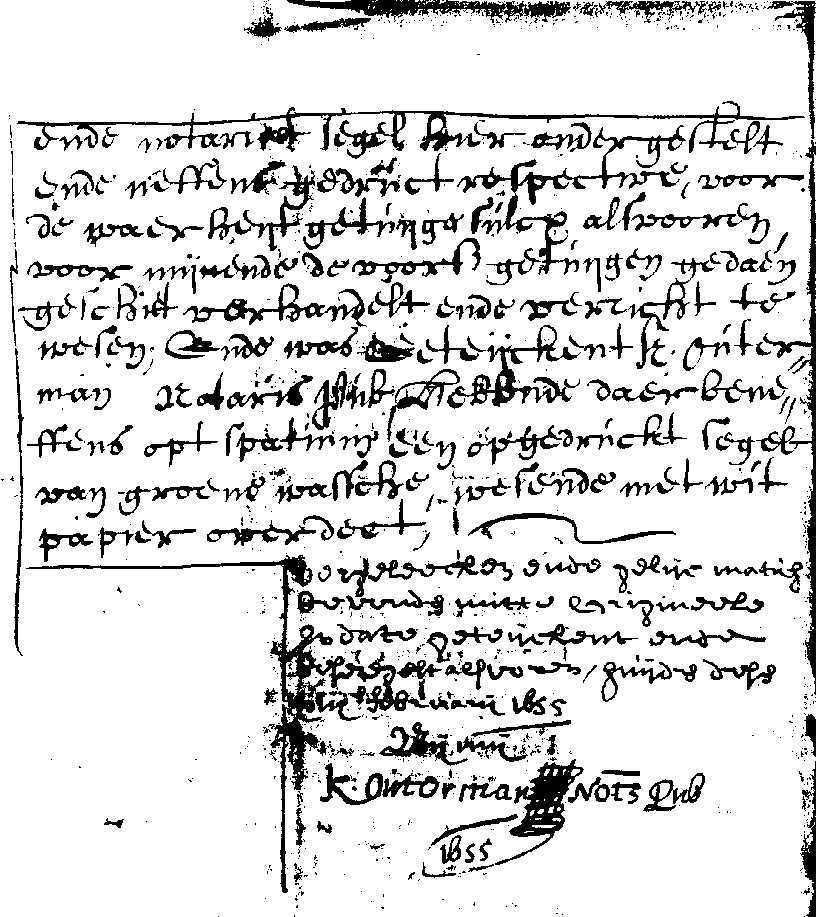 ende notariael segel hier ondergestelt
ende neffens gedruct respective, voor
de waerheyt getuyge sulcx alsvooren,
voor mij ende de voors getuijgen gedaen
geschiet verhandelt ende verricht te
wesen. Ende was geteijckent K. Outer-
man Notaris Pub hebbende daer bene-
ffens opt spatium een opgedruckt segel
van groene wassche, wesende met wit
papier overdect,
ende gelijc
bevonde mitte Originele
In date geteijckent ende
alsvoren,
Februarij 1655
Bij mij
K. Outerman Nots Pub
1655